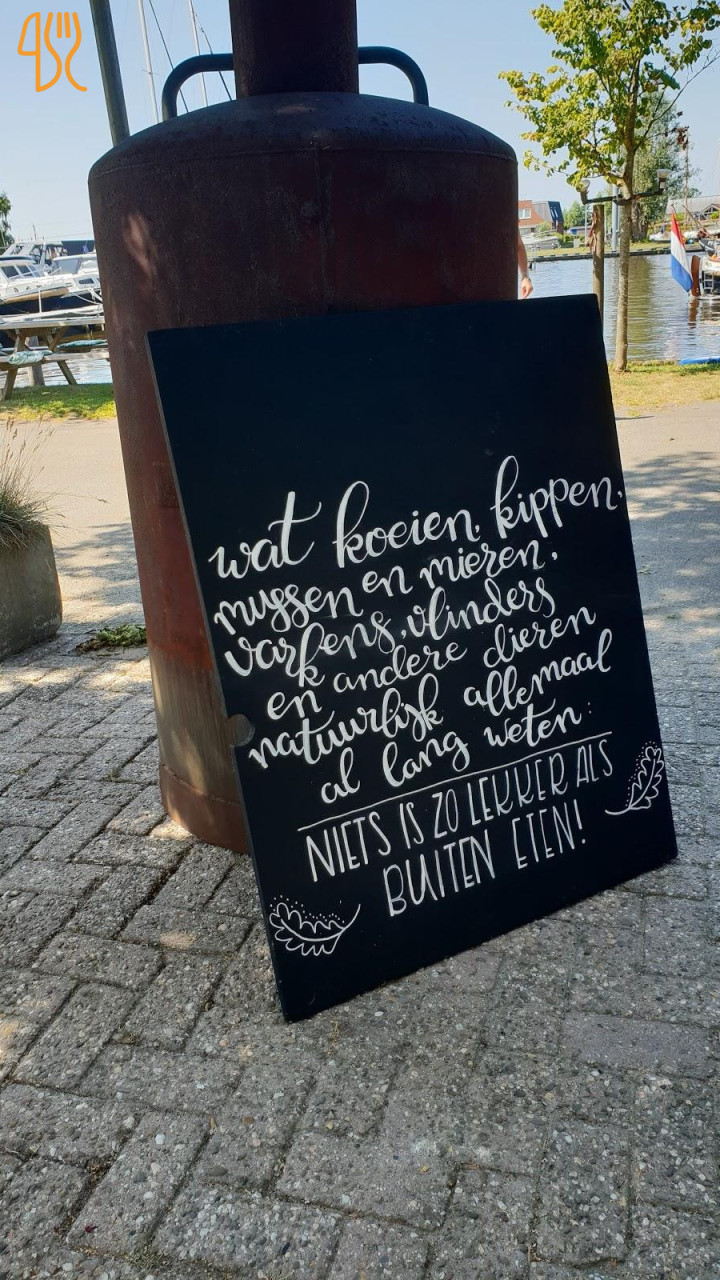 wat koeien, kippen,
mussen en mieren,
varkens, vlinders
en andere dieren
natuurlijk allemaal
al lang weten:
NIETS IS ZO LEKKER ALS
BUITEN ETEN!